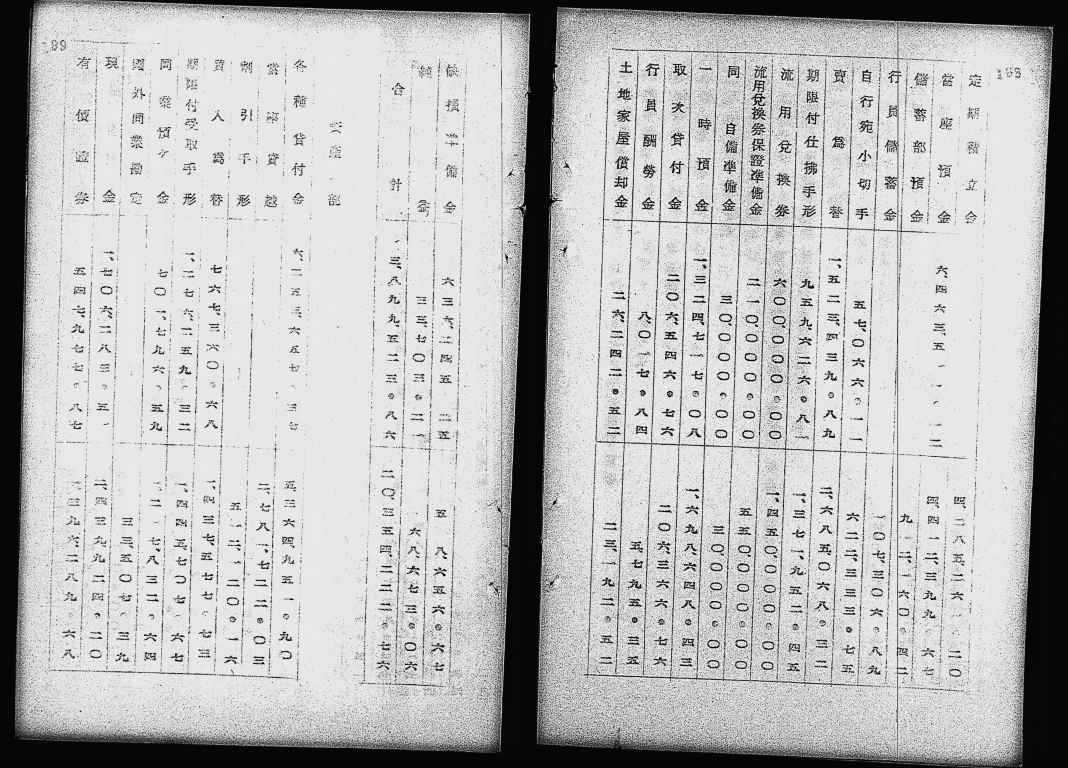 定期積立金 四、二八五、二六一。二〇
當座預金 六、四六三、五一一。一二 四、四一二、三九九。六七
儲蓄部預金 九一二、一六〇。四二
行員儲蓄金 一〇七、三〇六。八九
自行宛小切手 五七、〇六六。一一 六二二、三三三。七五
賣爲替 一、五二三、四三九。八九 二、六八五、〇六八。三二
期限付仕拂手形 九五九、六二六。八一 一、三七一、九五二。四五
流用兌換券 六〇〇、〇〇〇。〇〇 一、四五〇、〇〇〇。〇〇
流用兌換券保證準備金 二一〇、〇〇〇。〇〇 五五〇、〇〇〇。〇〇
同自備準備金 三〇、〇〇〇。〇〇 三〇〇、〇〇〇。〇〇
一時預金 一、三二四、七一七。〇八 一、六九八、六四八。四三
取次貸付金 二〇六、五四六。七六 二〇六、三六六。七六
行員酬勞金 八〇一七。八四 五、七九五。三五
土地家屋償却金 二六、二四二。五二 二三、一九二。五二
缺損準備金 六三六、二四五 二五 五八、六五六。六七
純益金 三三、七〇三。二一 六八、六七三。〇六
合計 一三、八九九、五二三。八六 二〇、三五四、二二二。七六
資産部
各種貸付金 五、三六四、九五一。九〇
當座貸越 二、七八一、七二二。〇三
割引手形 五一二、一二〇。一六
買入爲替 七六七、三六〇。六八 一、四三七、五七七。七三
期限付受取手形 一、二七六、二五九。三二 一、四四五、七〇七。六七
同業預ケ金 七〇一、七九六。五九 一二一七、八三二。六四
國外同業勘定 三三、五〇七。三九
現金 一、七〇六、二八三。五一 二、四三九、九二四。二〇
有價證券 五四七、九七七。八七 一、三九六、二八九。六八